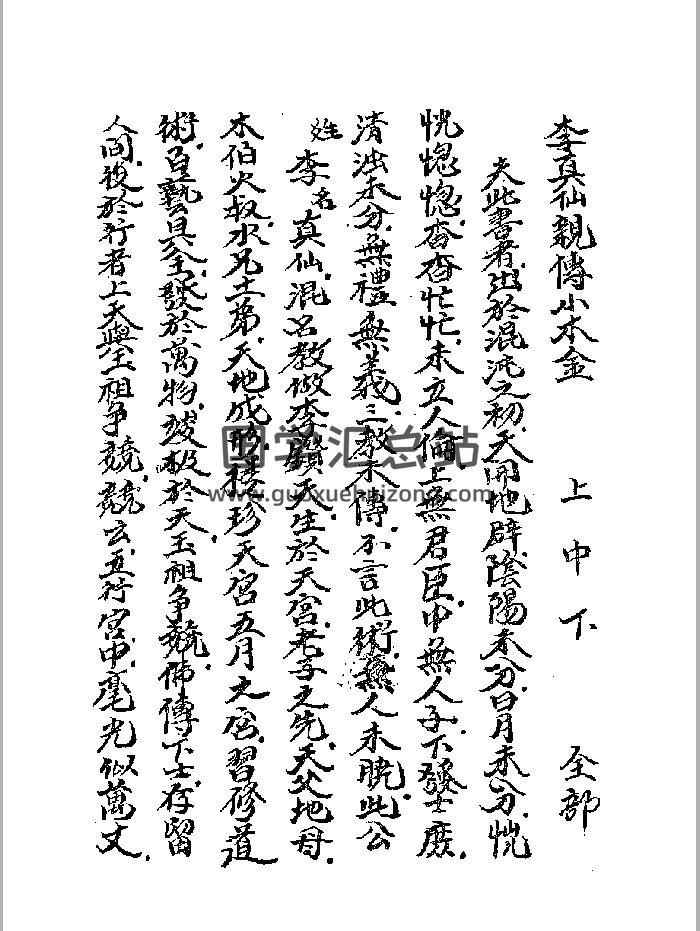 李真仙親傳小木金 上中下 全部
夫此書者出於混沌之初天開地辟陰陽未分日月未分恍
恍惚惚杳杳忙忙未立人倫上無君臣中無人子下發士庶
清浊未分無禮無義三教未傳不言此術無人未曉此公
姓李名真仙混名教做李鑽天生於天宮老子之先天父地母
木伯火叔水兄土弟天地成形 珍天宮五月之宮習修道
術百藝具全發於萬物 极於天玉祖争競佛傳下士存留
人间後於行者上天與玉祖争競競玄五行宮中毫光似萬丈
国学汇总站
www.guoxuehuizong.com